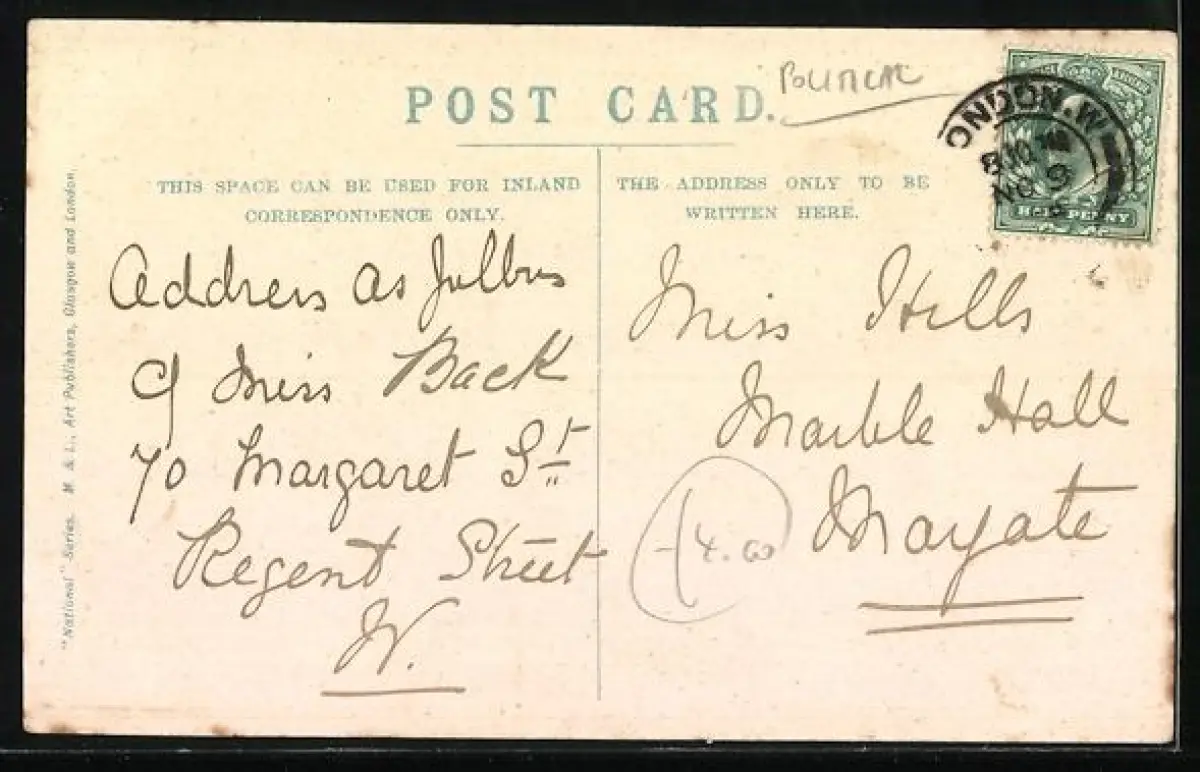 POST CARD.
POLITICAL
THIS SPACE CAN BE USED FOR INLAND
CORRESPONDENCE ONLY.
THE ADDRESS ONLY TO BE
WRITTEN HERE.
LONDON. W
NO 9
HALFPENNY
"National" Series. M. & L., Art Publishers, Glasgow and London.
Address as follows
c/ Miss Back
70 Margaret St
Regent Street
W.
Miss Hills
Marble Hall
Margate
4.00